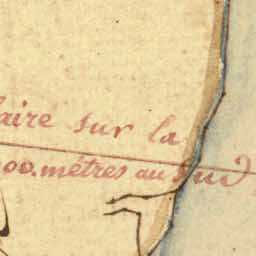 aire sur la
00. métres au Sud